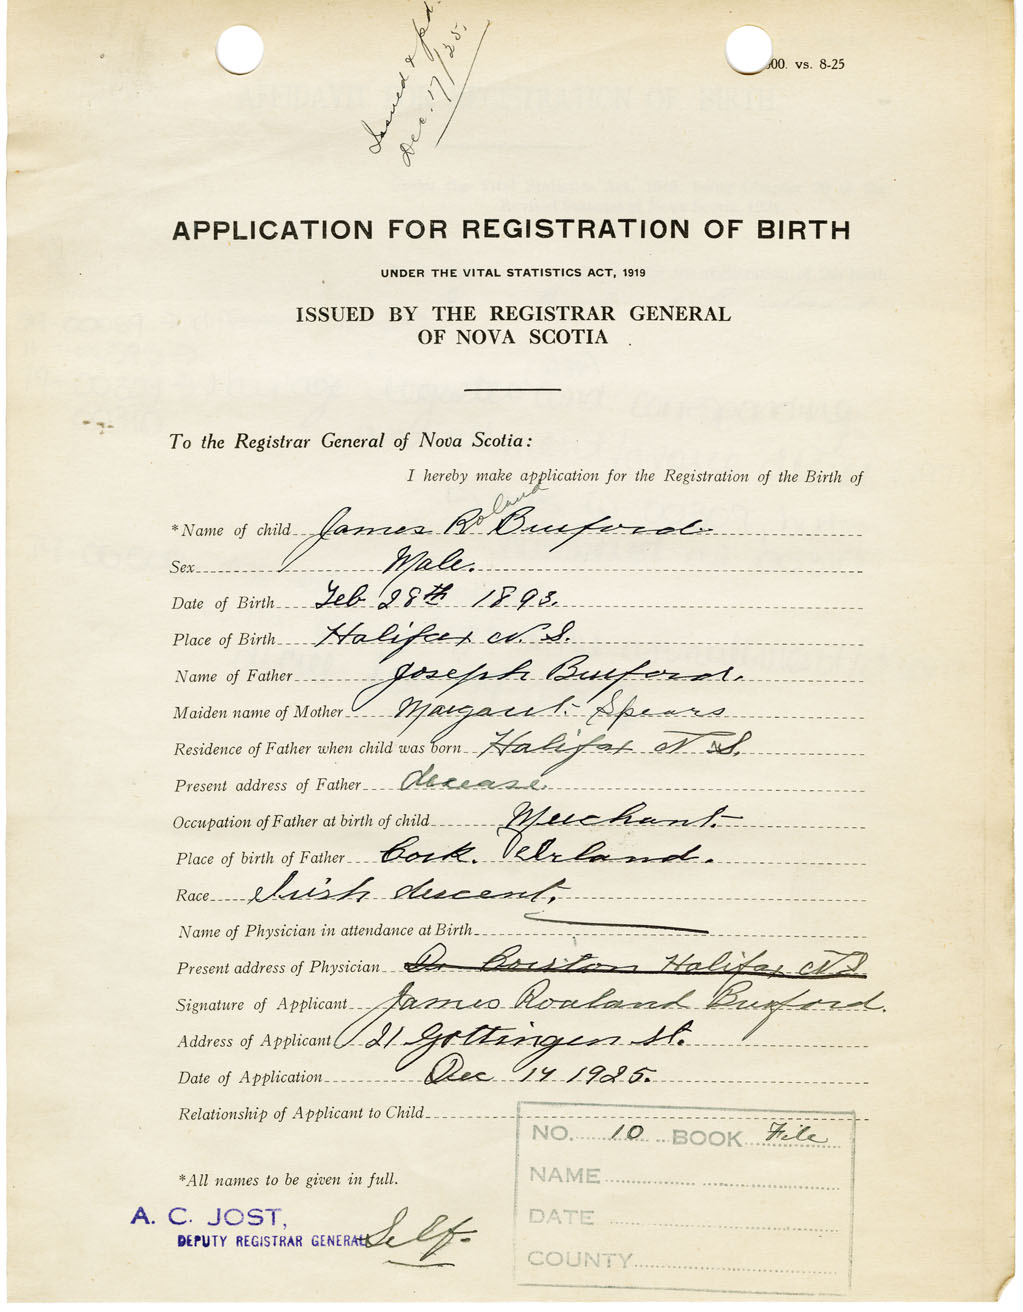 Issued & pd.
Dec. 17/25.
00. vs. 8-25
APPLICATION FOR REGISTRATION OF BIRTH
UNDER THE VITAL STATISTICS ACT, 1919
ISSUED BY THE REGISTRAR GENERAL
OF NOVA SCOTIA
To the Registrar General of Nova Scotia:
I hereby make application for the Registration of the Birth of
*Name of child James Roland Buxford
Sex Male.
Date of Birth Feb 28th 1893.
Place of Birth Halifax N. S.
Name of Father Joseph Buxford.
Maiden name of Mother Margaret Spears
Residence of Father when child was born Halifax N. S.
Present address of Father decease.
Occupation of Father at birth of child Merchant.
Place of birth of Father Cork. Ireland.
Race Irish descent.
Name of Physician in attendance at Birth
Present address of Physician Dr Halifax N S
Signature of Applicant James Roaland Buxford.
Address of Applicant 21 Gottingen St.
Date of Application Dec 14 1925.
Relationship of Applicant to Child
NO. 10 BOOK File
NAME
DATE
COUNTY
*All names to be given in full.
A. C. JOST,
DEPUTY REGISTRAR GENERAL
Self.